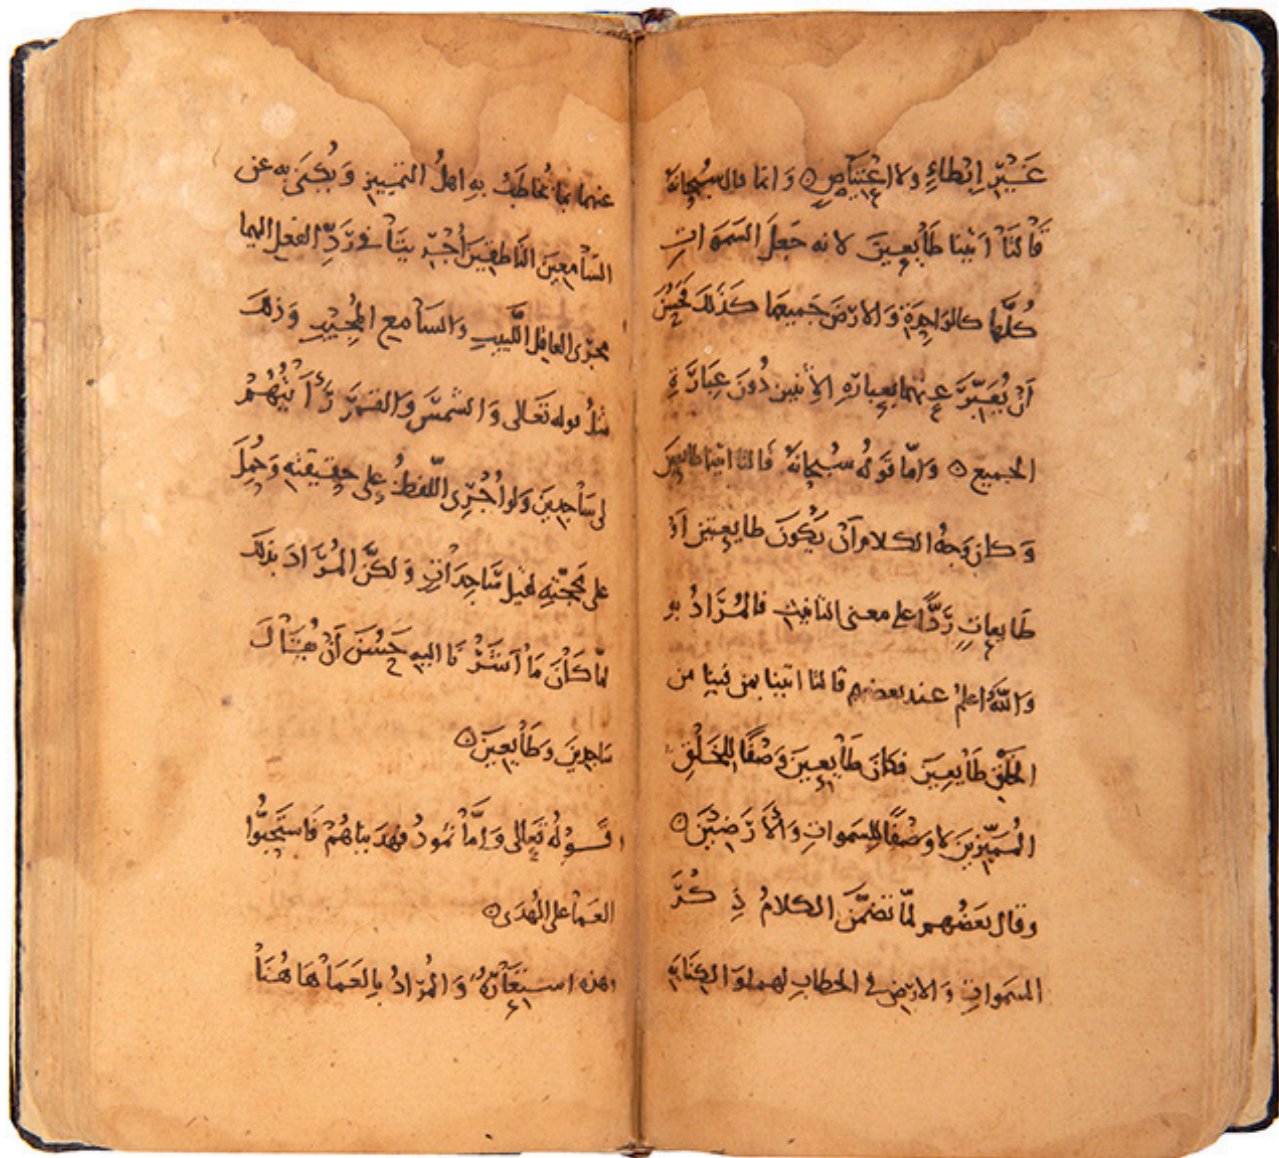 غَيْرِ اِبْطاءٍ ولا اعْتِيَاصٍ ۝ وَانما قال سُبحانهُ
قَالَتَا اَتَينا طَايِعِينَ لانه جَعلَ السَّمَوَاتِ
كُلَّها كالوَاحِدَةِ وَالارْضَ جَميعها كَذَلكَ فحَسُنَ
اَنْ يُعَبِّرَ عنهما بِعِبارَةِ الاِثنين دُونَ عِبَارَةِ
الجميع ۝ وَامّا قَولُه سُبحانهُ قَالتا اتَينا طايعِينَ
وَكان وَجهُ الكلام اَنْ يَكُونَ طايعتين اَوْ
طَايعاتٍ رَدًّا على معنى التانيثِ فالمُرَادُ بهِ
وَاللّهُ اعلمُ عند بعضهم قَالتا اتينا بمن فينا من
الخلْقِ طَايعينَ فكانَ طَايِعِينَ وَصْفًا لِلخَلْقِ
المُمَيّزينَ لا وَصْفًا للسموات وَالاَرَضِيْنَ ۝
وقال بَعضُهم لمّا تضَمّنَ الكلامُ ذِكْرَ
السمواتِ وَالارْضِ في الخطابِ لهما وَالكِنَايةِ
عنهما بما يُخاطَبُ بهِ اهلُ التمييزِ وَيُكنَى به عن
السّامِعينَ النّاطقينَ اُجْرِيَتَا في رَدِّ الفعل اليهما
مجرَى العاقل اللَّبيبِ وَالسامع المُجيبِ وَذلكَ
مثلُ قوله تعَالى وَالشمْسَ وَالقمَرَ رَأَيْتُهُمْ
لى سَاجدينَ وَلو اُجْرِىَ اللّفظُ على حقيقتهِ وَحُمِلَ
على مَحَجّتِهِ لقيل سَاجِدَاتٍ وَلكنَّ المُرَادَ بذلكَ
لمّا كَانَ مَا اَشَرْنَا اليهِ حَسُنَ اَنْ يُقَالَ
سَاجدِينَ وَطَايعِينَ ۝
قَوْلُهُ تَعالى وَاَمّا ثمُودُ فهدَيناهُمْ فَاستَحَبُّوا
العَمَا على الهُدَى ۝
وهذه استعَارَةٌ وَالمُرَادُ بالعَمَا هَاهُنَا